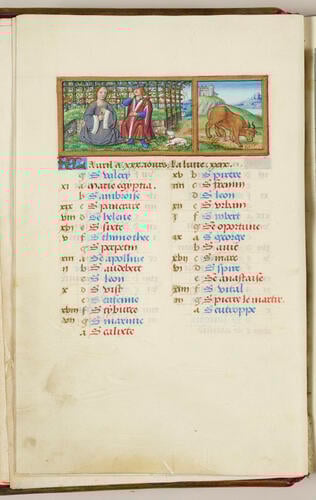 Avril a xxx. iours. La lune. xxix.
g S valery
xi A Marie egyptia.
b S ambroise
xix c S pancrace
viii d Se helene
xvi e S sixte
v f S thimothee
g S perpetin
A Se apoline
ii b S audebert
c S leon
x d S vist
e S eufemie
xviii f S tyburce
vii g S maxime
A S calixte
b S pierre
c S fremin
d S leon
e S urbain
f S robert
g Se oportune
A S george
b S avie
c S marc
d S spire
e Se anastaise
f S vital
g S pierre le martir.
A S eutroppe